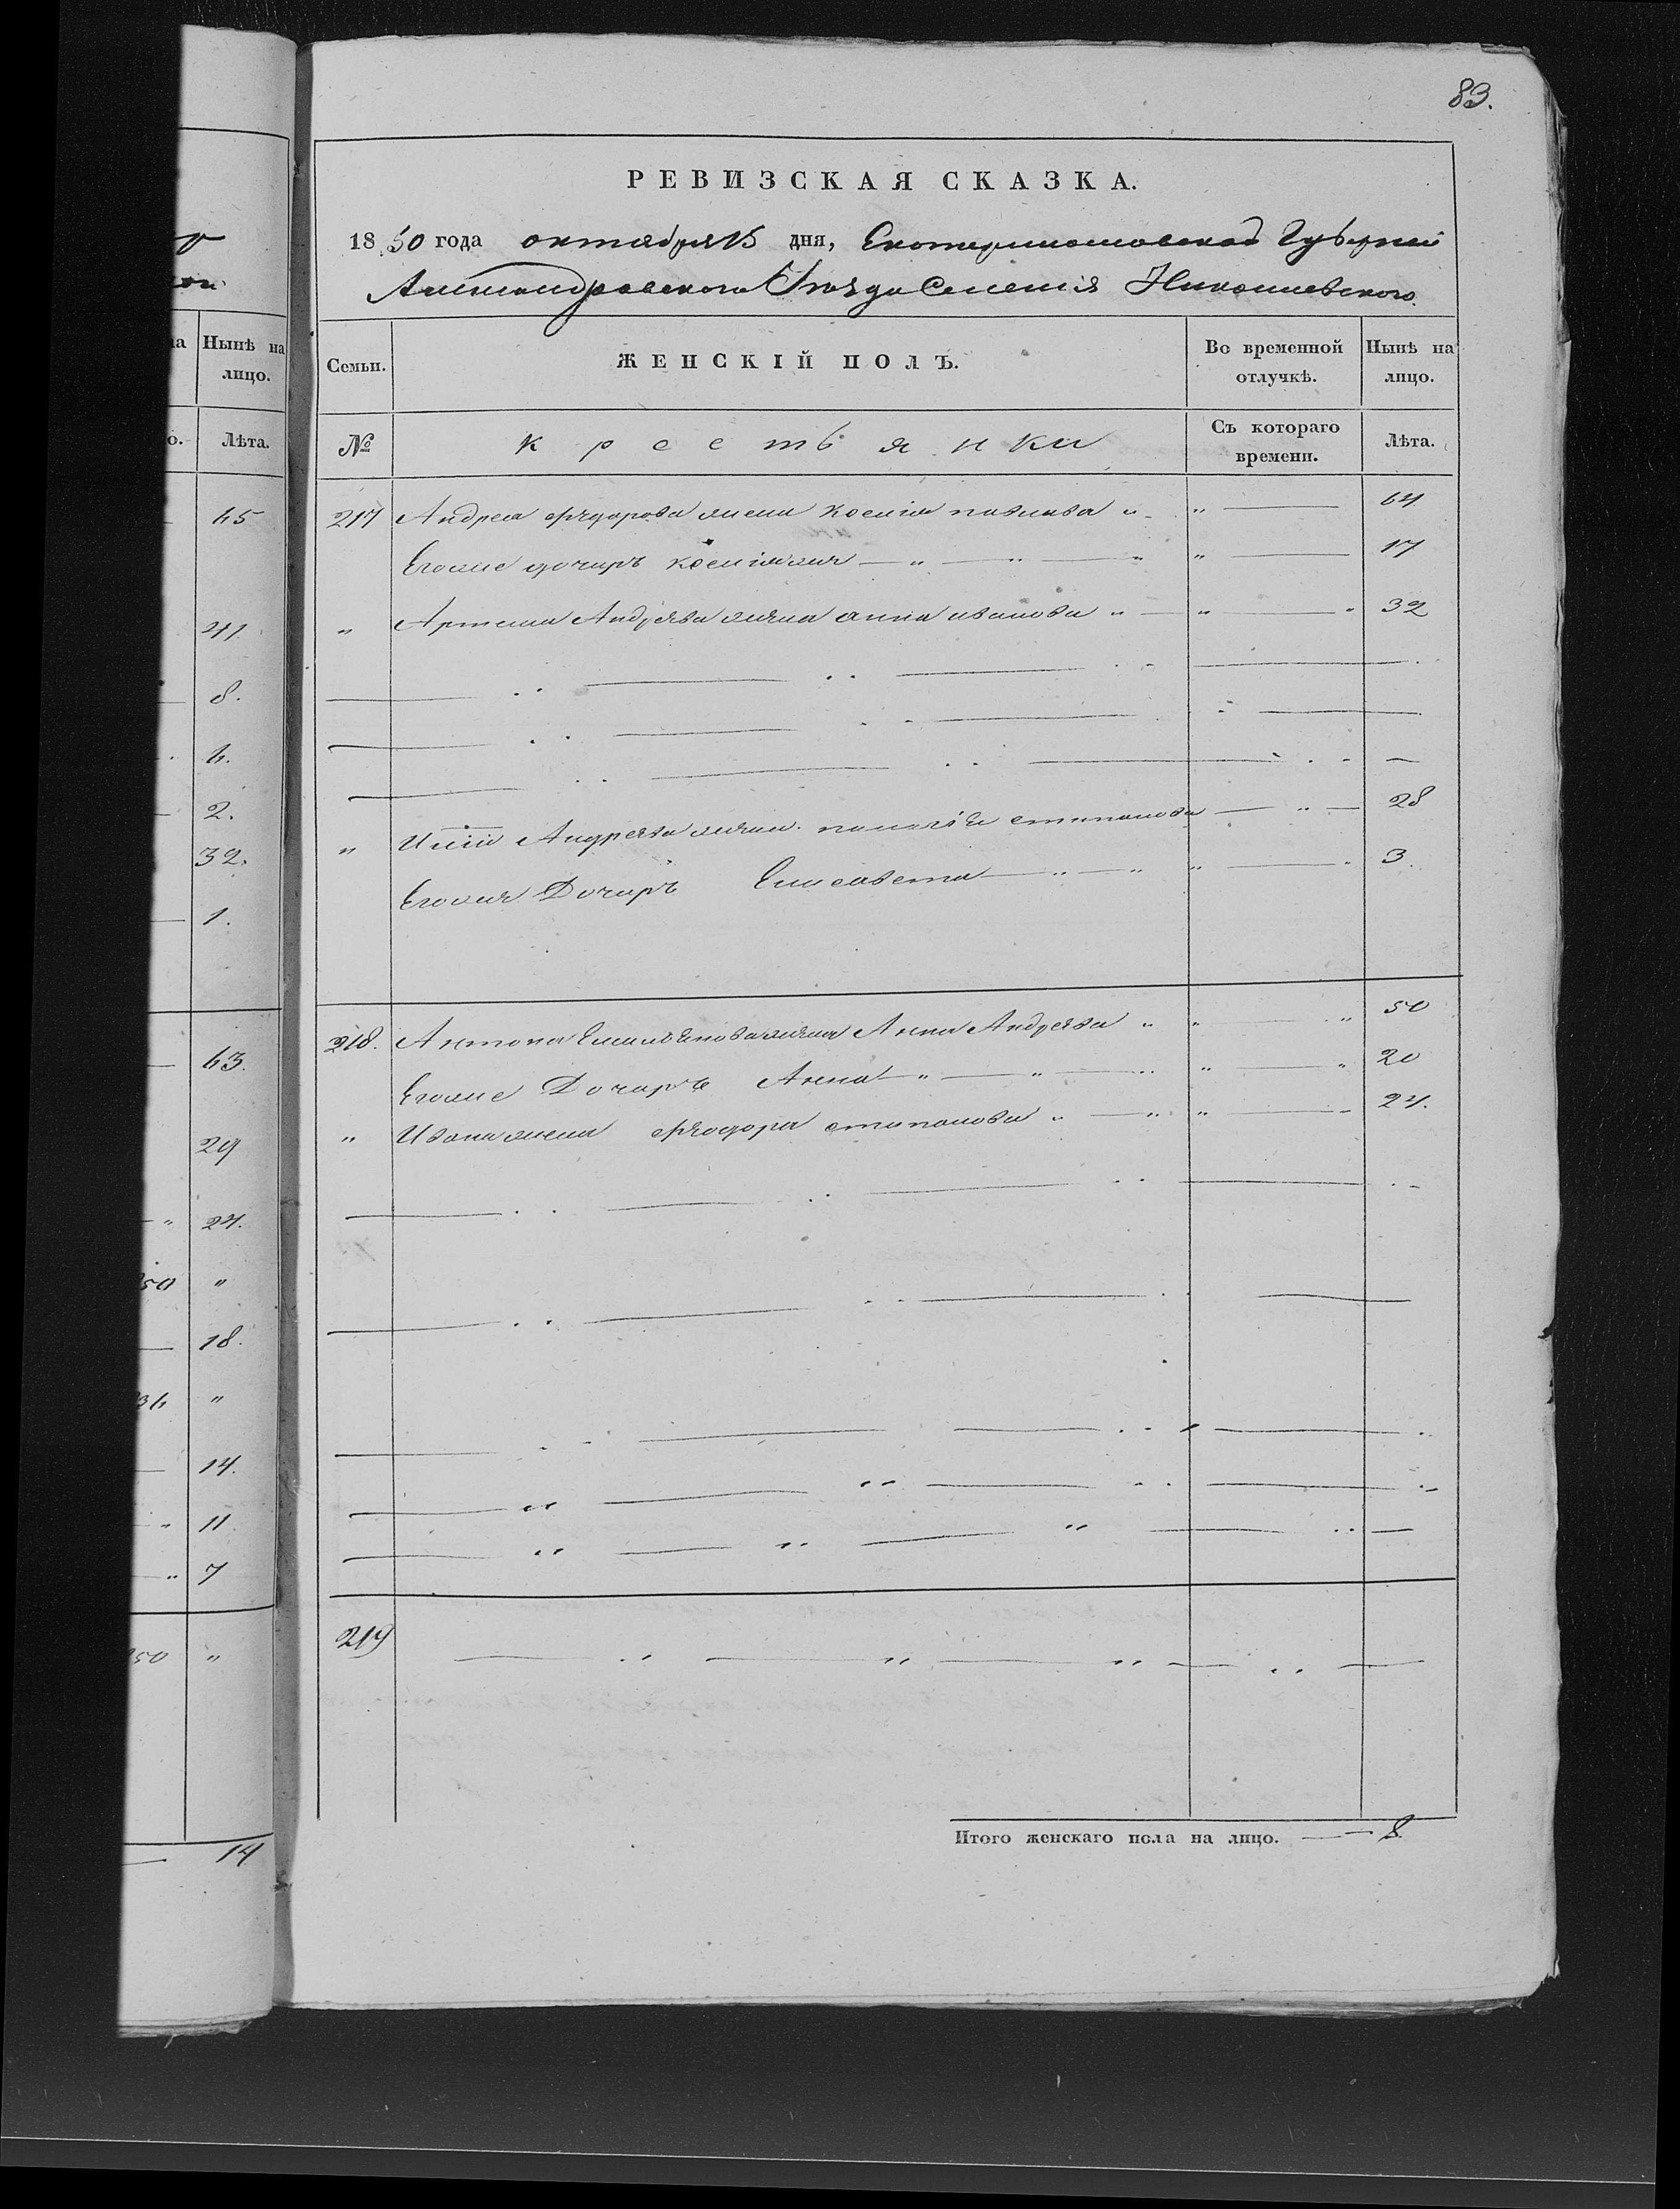 83.
РЕВИЗСКАЯ СКАЗКА.
1850 года октября 15 дня, Екатеринославской Губернии
Александровского Уезда Селения Николаевского.
Семьи.
ЖЕНСКІЙ ПОЛЪ.
Во временной отлучкѣ.
Нынѣ на лицо.
№
крестьянки
Съ котораго времени.
Лѣта.
217 Андрея Фѣдорова жена Ксения павлова " " 64
Егоже дочирь " " " 17
" Артема Андрѣва жена анна иванова " " " 32
" Андрѣва жена пелагѣя стипанова " 28
Егоже Дочирь Елисавета " " " 3.
218. Антона Емельянова жена Анна Андрѣва " " " 50
Егоже Дочирь Анна " " " " 20
" Ивана жена Фѣодора стипанова " " " 24.
219 " " "
Итого женскаго пола на лицо. 8
Нынѣ на лицо.
Лѣта.
65
41.
8.
6.
2.
32.
1.
63.
29
" 24.
50 "
18.
36 "
14.
" 11
" 7
50 "
14